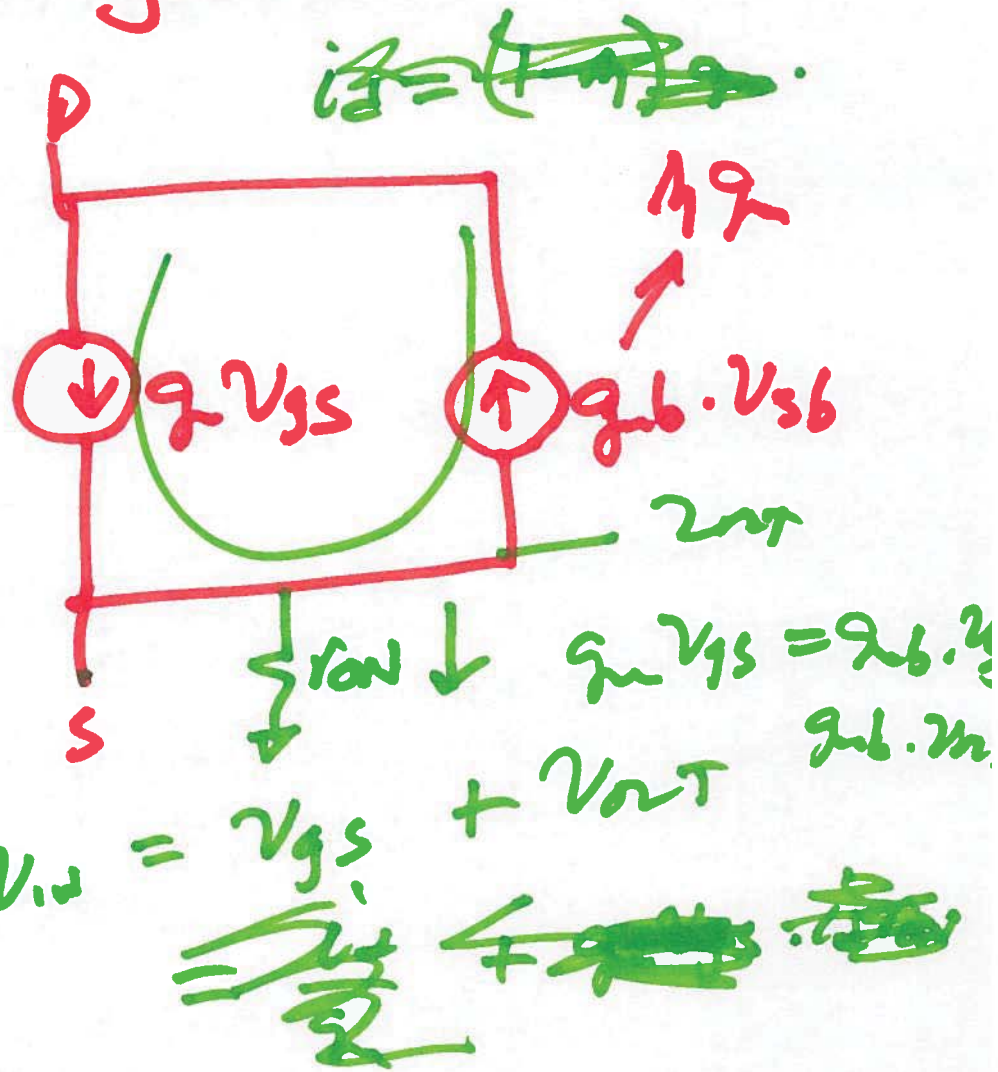 D
ηgm
gm vgs
gmb · vsb
vout
ron
gm vgs = gmb · v
gmb · vou
vin = vgs + vout
S